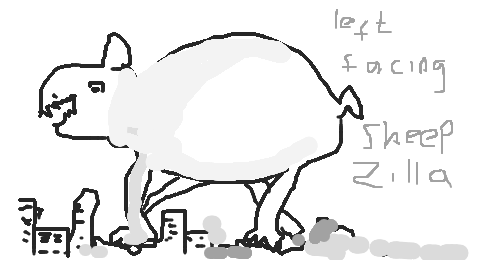 left
facing
sheep
zilla